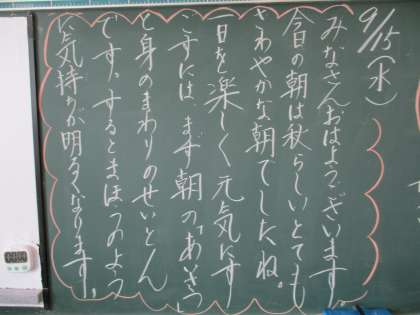 9/15(水)
みなさんおはようございます。
今日の朝は秋らしいとても
さわやかな朝でしたね。
一日を楽しく元気にす
ごすには、まず朝の「あいさつ」
と身のまわりのせいとん
です。するとまほうのよう
に気持ちが明るくなります。